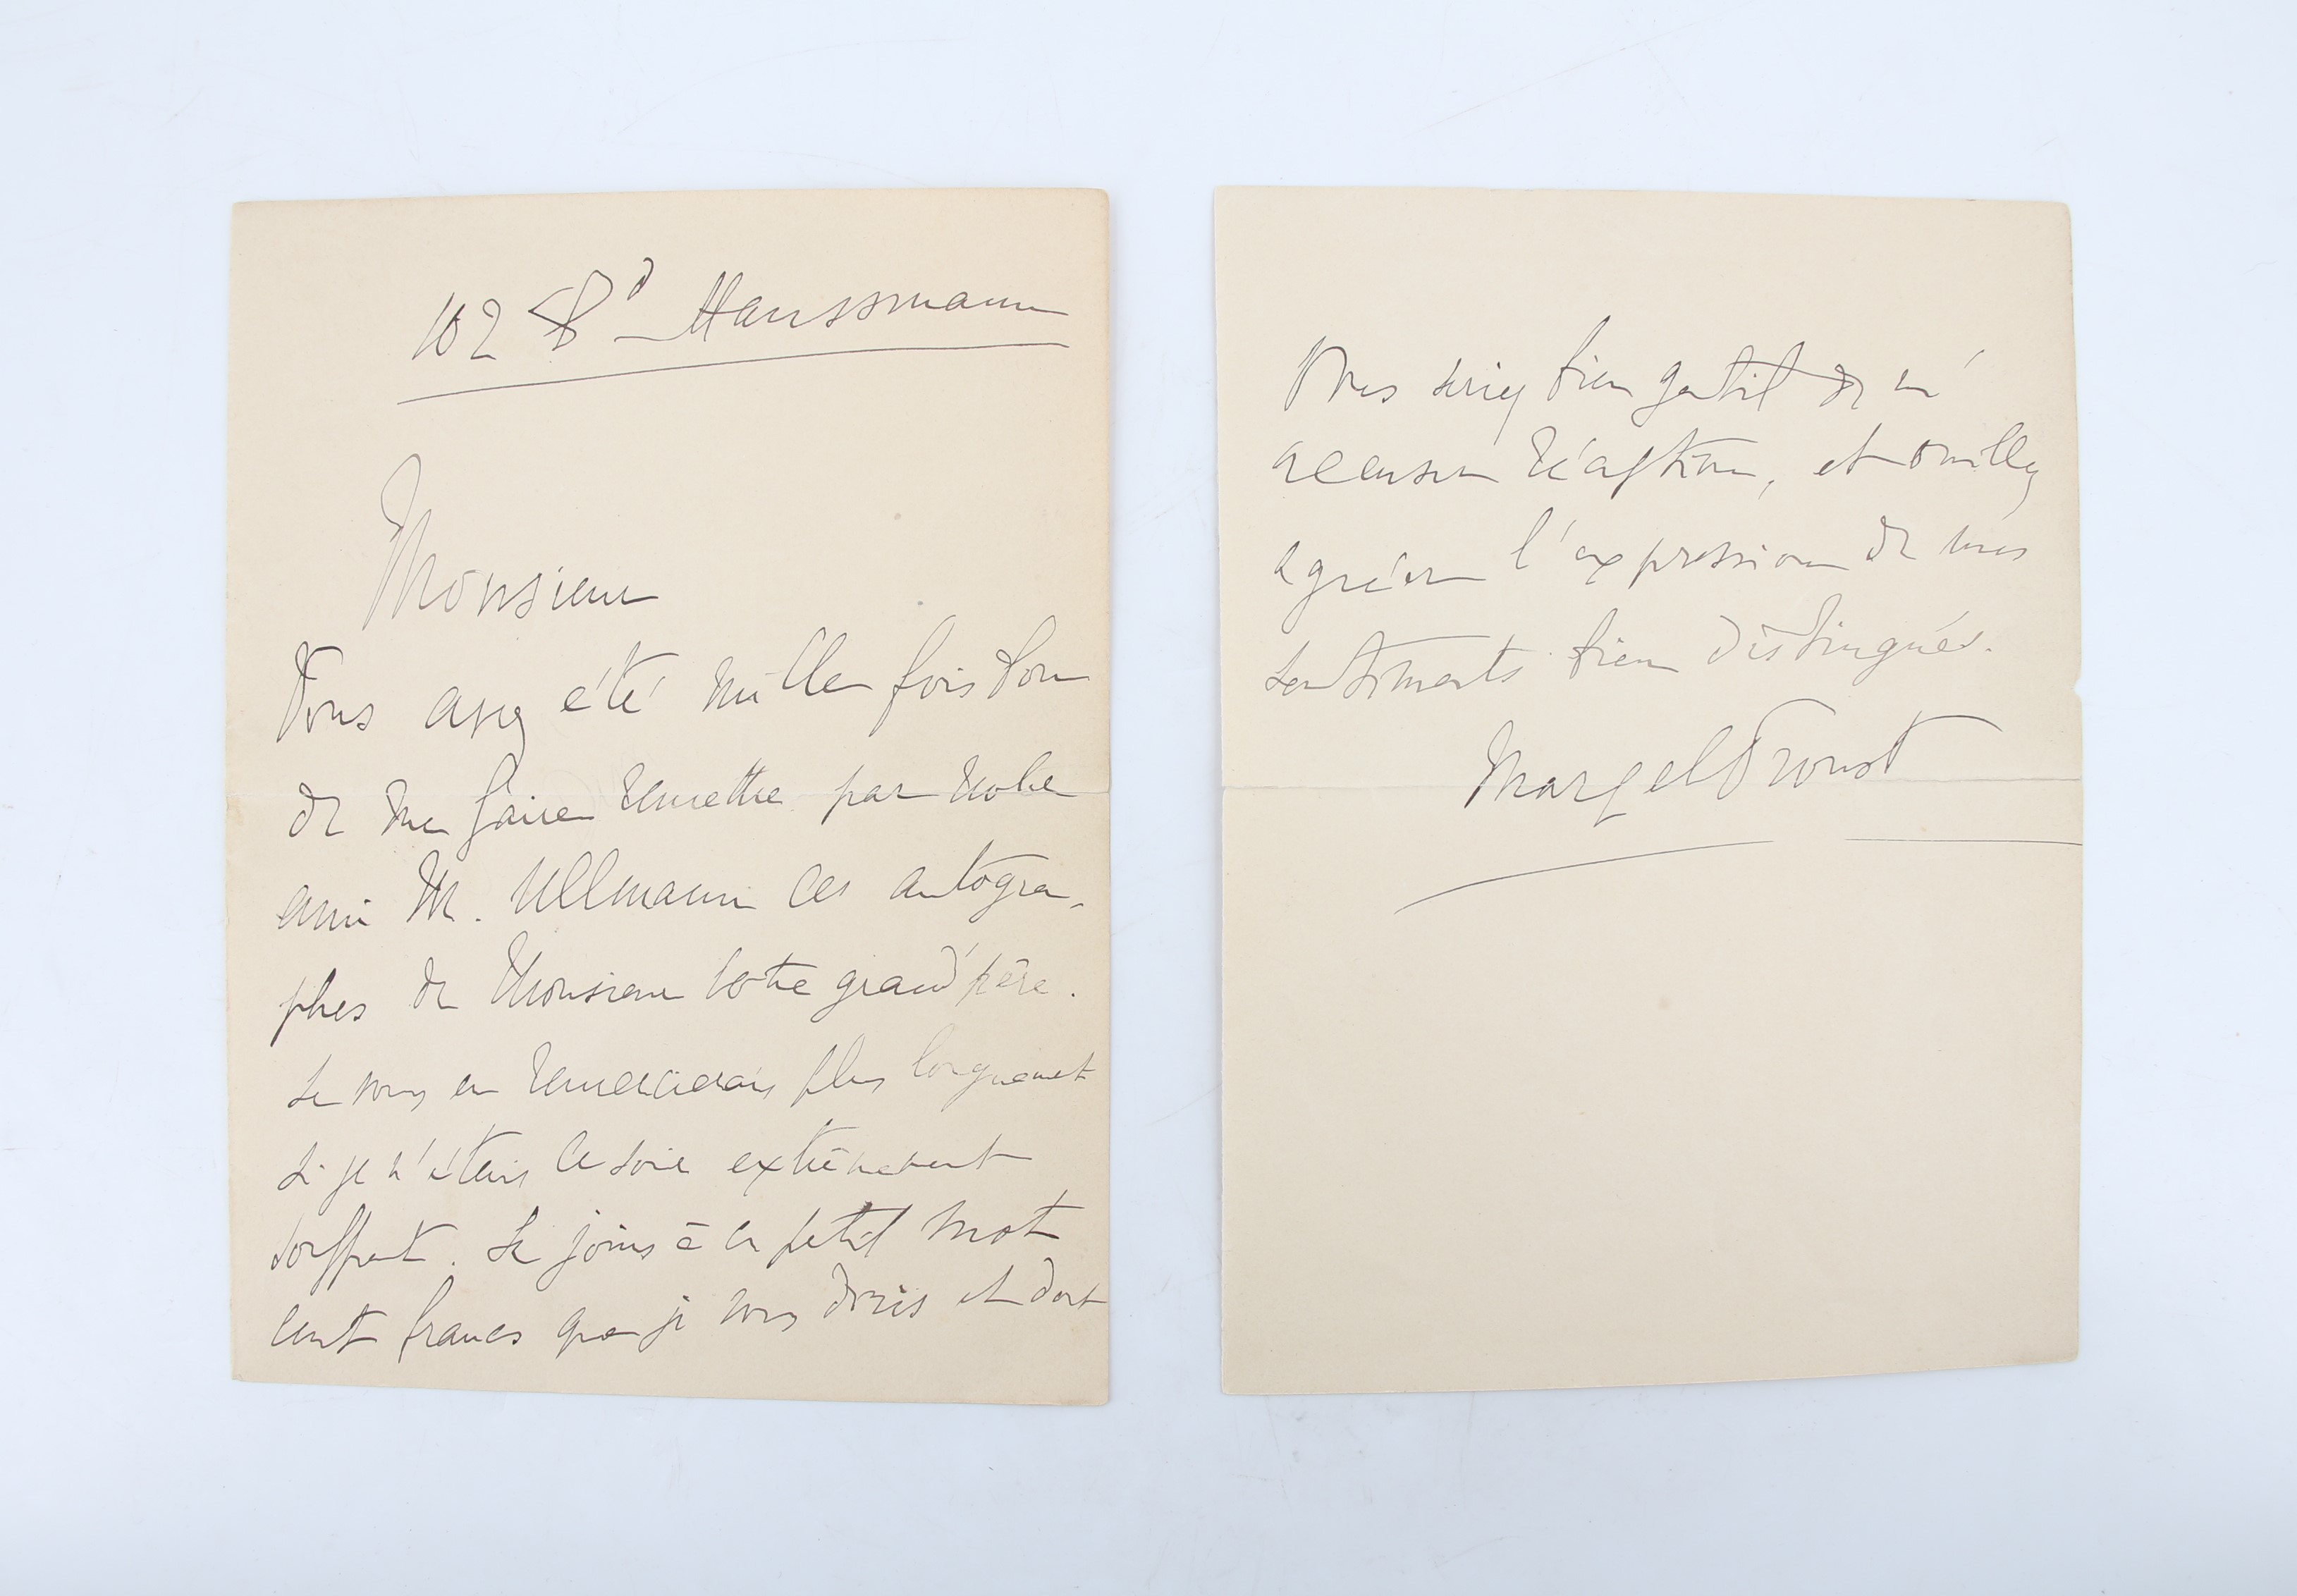 102 Bd Haussmann
Monsieur
Vous avez été mille fois bon
de me faire remettre par notre
ami M. Ullmann ces autogra-
phes de Monsieur votre grand'père.
Je vous en remercierais plus longuement
si je n'étais ce soir extrêmement
souffrant. Je joins à ce petit mot
cent francs que je vous dois et dont
Vous seriez bien gentil de m'
accuser réception, et veuillez
agréer l'expression de mes
sentiments bien distingués.
Marcel Proust